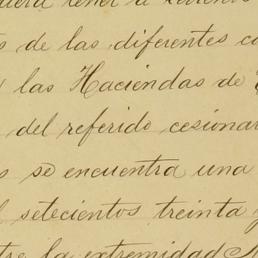 tener á
de las diferentes
las Haciendas de
del referido cesionar
se encuentra una
setecientos treinta y
la extremidad